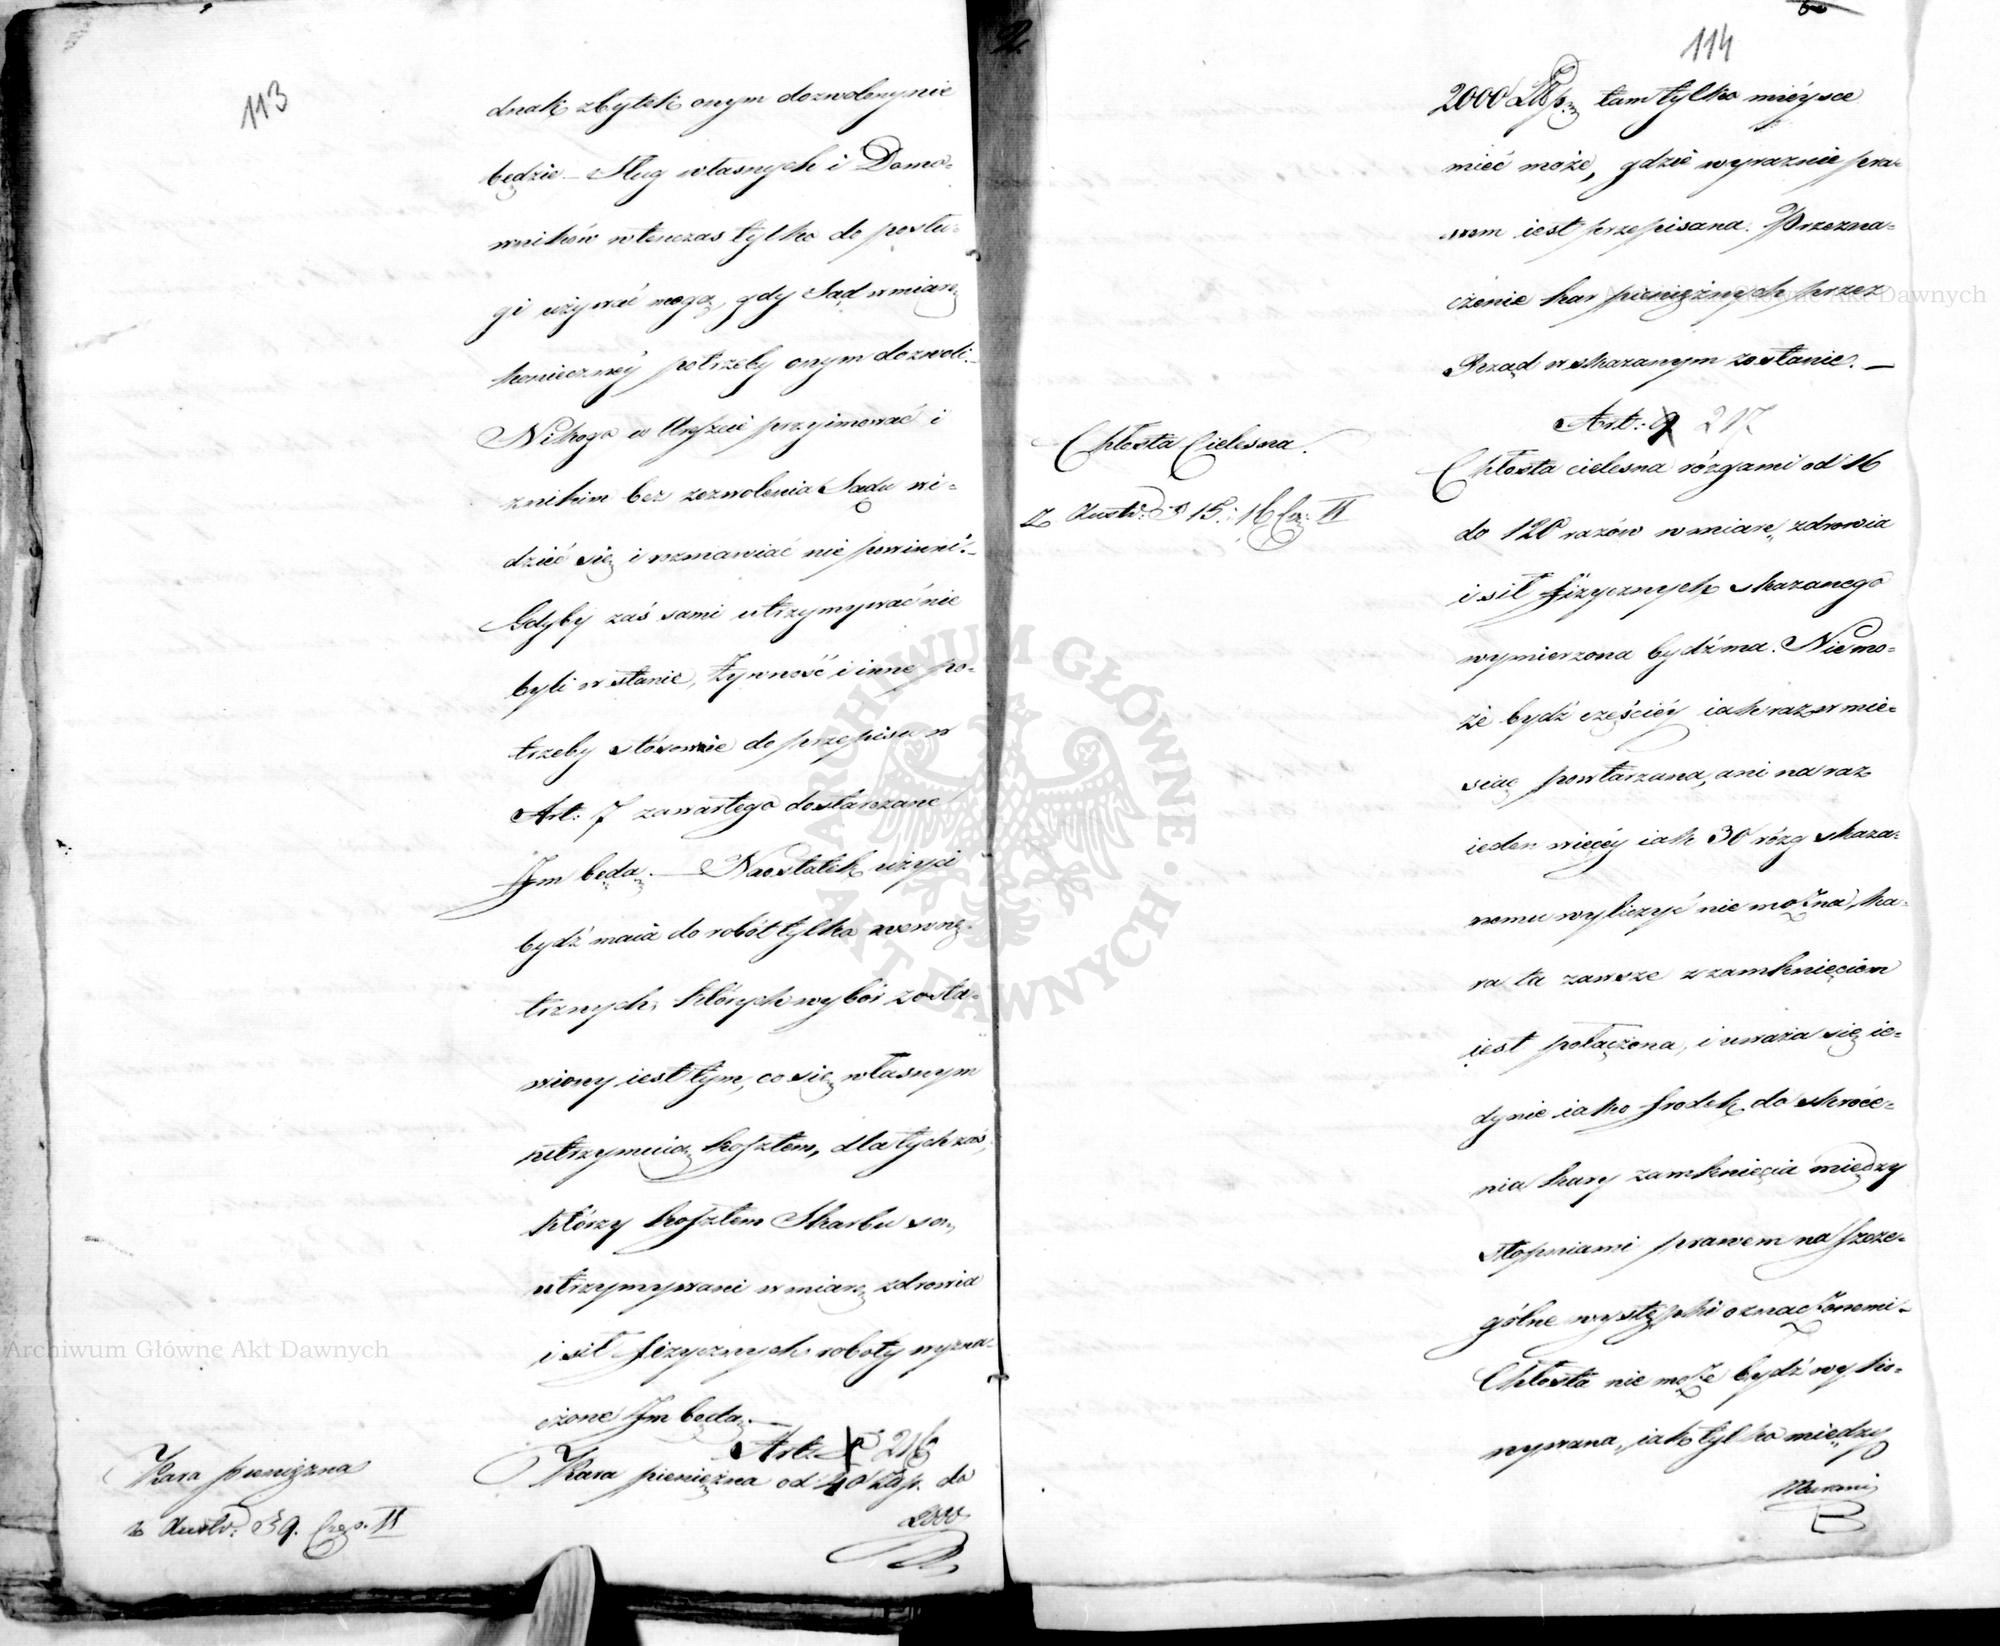 113
dnak zbytek onym dozwolony nie
będzie – Sług własnych i Domo-
wników wtenczas tylko do posłu-
gi używać mogą, gdy Sąd w miarę
konieczney potrzeby onym dozwoli.-
Nikogo w Areszcie przyimować i
z nikim bez zezwolenia Sądu wi-
dzieć się i rozmawiać nie powinni.-
Gdyby zaś sami utrzymywać nie
byli w stanie, żywność i inne po-
trzeby stósownie do przepisu w
Art: 7 zawartego dostarczane
Jm będą. — Naostatek użyci
bydź maią do robót tylko wewnę-
trznych, których wybór zosta-
wiony iest tym, co się własnym
utrzymuią kosztem, dla tych zaś,
którzy kosztem Skarbu są
utrzymywani w miarę zdrowia
i sił fizycznych roboty wyzna-
czone Jm będą. —
Art: 216
Kara pieniężna
z Austr: § 9. Częs. II
Kara pieniężna od 40 Złp. do
2000
114
2000 Złp. tam tylko mieysce
mieć może, gdzie wyraznie pra-
wem iest przepisana. Przezna-
czenie kar pieniężnych przez
Rząd wskazanym zostanie. —
Art: 9 217
Chłosta Cielesna.
z Austr: § 15. 16 Cz: II
Chłosta cielesna rózgami od 16
do 120 razów w miarę zdrowia
i sił fizycznych skazanego
wymierzona bydź ma. Nie mo-
że bydź częściéy iak raz w mie-
siąc powtarzana, ani na raz
ieden więcéy iak 30 rózg skaza-
nemu wyliczyć nie można, ka-
ra ta zawsze z zamknięciem
iest połączona, i uważa się ie-
dynie iako srodek do skróce-
nia kary zamknięcia między
stopniami prawem na szcze-
gólne występki oznaczonemi.-
Chłosta nie może bydź wyko-
nywana, iak tylko między
murami
Archiwum Główne Akt Dawnych
Archiwum Główne Akt Dawnych
ARCHIWUM GŁÓWNE AKT DAWNYCH